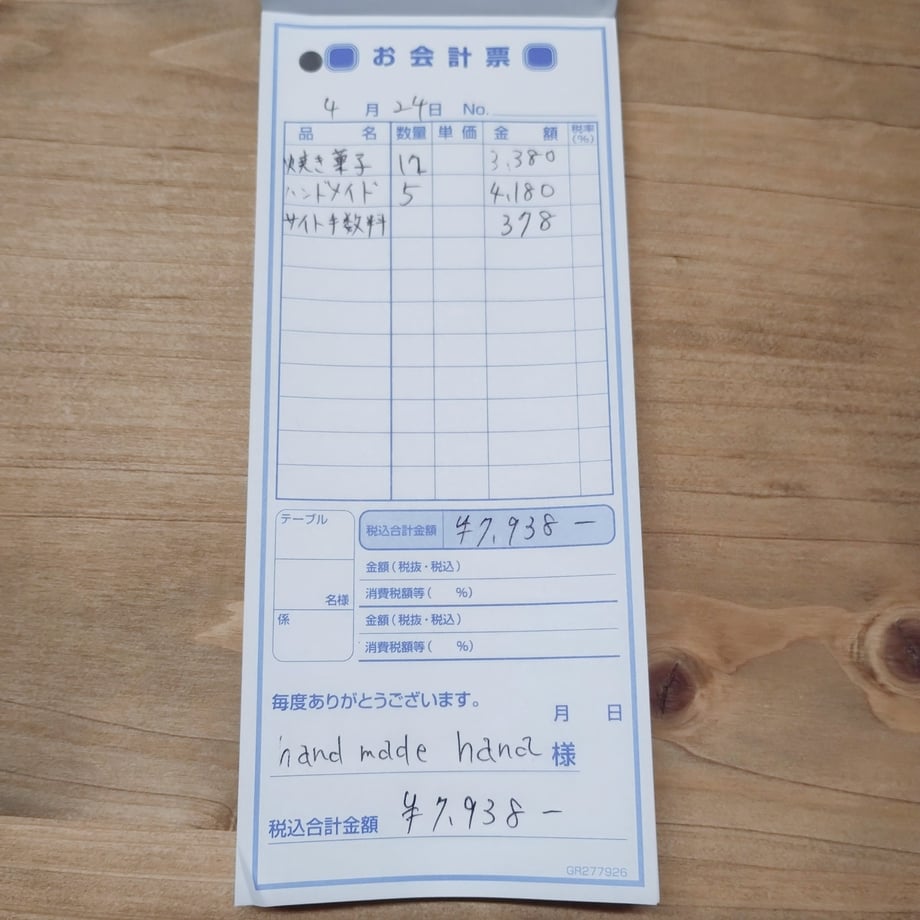 お会計票
4月24日 No.
品名 数量 単価 金額 税率(%)
焼き菓子 12 3,380
ハンドメイド 5 4,180
サイト手数料 378
テーブル
名様
係
税込合計金額 ¥7,938-
金額(税抜・税込)
消費税額等( %)
金額(税抜・税込)
消費税額等( %)
毎度ありがとうございます。
月 日
hand made hana 様
税込合計金額 ¥7,938-
GR277926